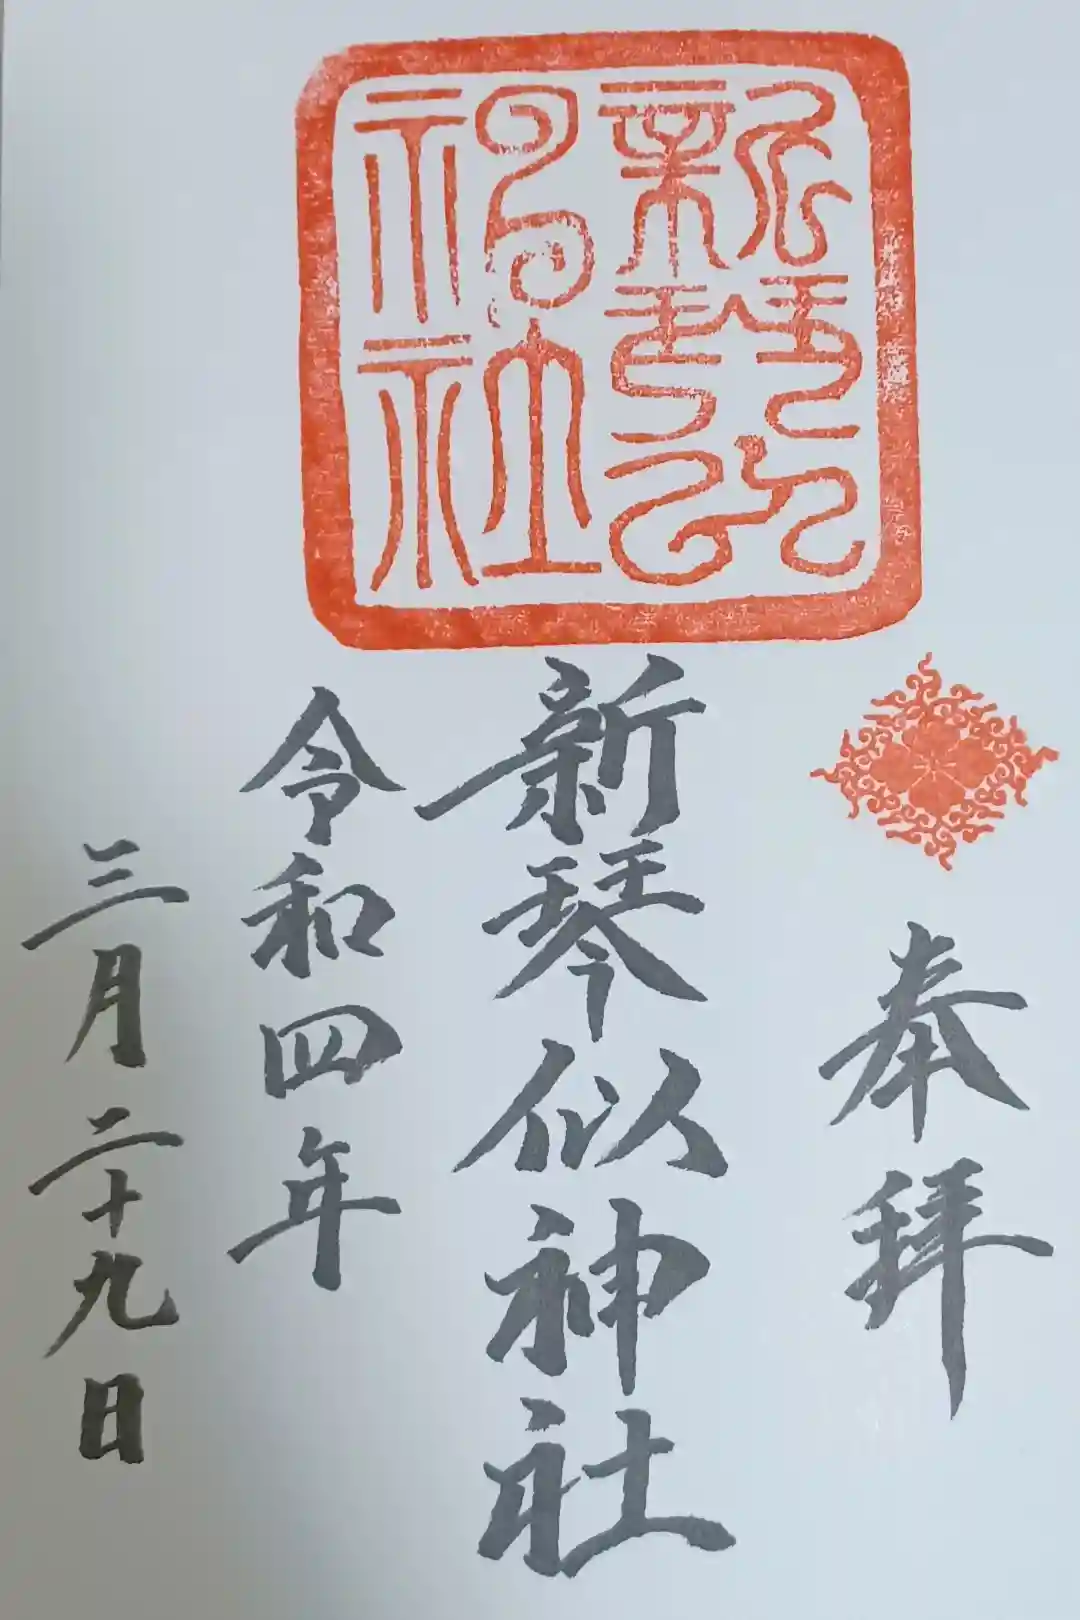 新琴似神社
奉拝
新琴似神社
令和四年
三月二十九日